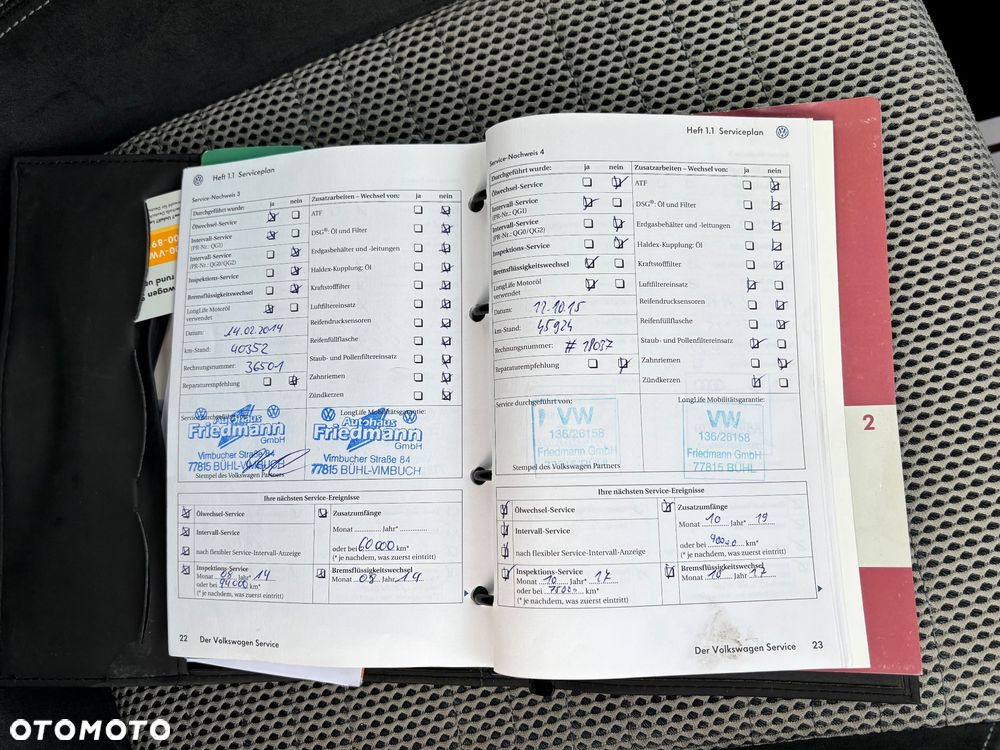 Heft 1.1 Serviceplan
Service-Nachweis 3
Durchgeführt wurde: ja nein
Ölwechsel-Service
Intervall-Service
(PR-Nr.: QG1)
Intervall-Service
(PR-Nr.: QG0/QG2)
Inspektions-Service
Bremsflüssigkeitswechsel
LongLife Motoröl
verwendet
Datum: 14.02.2014
km-Stand: 40352
Rechnungsnummer: 36501
Reparaturempfehlung
Zusatzarbeiten – Wechsel von: ja nein
ATF
DSG®: Öl und Filter
Erdgasbehälter und -leitungen
Haldex-Kupplung: Öl
Kraftstofffilter
Luftfiltereinsatz
Reifendrucksensoren
Reifenfüllflasche
Staub- und Pollenfiltereinsatz
Zahnriemen
Zündkerzen
Service durchgeführt von:
LongLife Mobilitätsgarantie:
Autohaus
Friedmann
GmbH
Vimbucher Straße 84
77815 BÜHL-VIMBUCH
Autohaus
Friedmann
GmbH
Vimbucher Straße 84
77815 BÜHL-VIMBUCH
Stempel des Volkswagen Partners
Ihre nächsten Service-Ereignisse
Ölwechsel-Service
Intervall-Service
nach flexibler Service-Intervall-Anzeige
Inspektions-Service
Monat 08 Jahr* 14
oder bei 44000 km*
(* je nachdem, was zuerst eintritt)
Zusatzumfänge
Monat ............ Jahr* ............
oder bei 60 000 km*
(* je nachdem, was zuerst eintritt)
Bremsflüssigkeitswechsel
Monat 08 Jahr 14
22 Der Volkswagen Service
Heft 1.1 Serviceplan
Service-Nachweis 4
Durchgeführt wurde: ja nein
Ölwechsel-Service
Intervall-Service
(PR-Nr.: QG1)
Intervall-Service
(PR-Nr.: QG0/QG2)
Inspektions-Service
Bremsflüssigkeitswechsel
LongLife Motoröl
verwendet
Datum: 12.10.15
km-Stand: 45924
Rechnungsnummer:
Reparaturempfehlung
Zusatzarbeiten – Wechsel von: ja nein
ATF
DSG®: Öl und Filter
Erdgasbehälter und -leitungen
Haldex-Kupplung: Öl
Kraftstofffilter
Luftfiltereinsatz
Reifendrucksensoren
Reifenfüllflasche
Staub- und Pollenfiltereinsatz
Zahnriemen
Zündkerzen
Service durchgeführt von:
LongLife Mobilitätsgarantie:
VW
136/26158
Friedmann GmbH
77815 BÜHL
VW
136/26158
Friedmann GmbH
77815 BÜHL
Stempel des Volkswagen Partners
Ihre nächsten Service-Ereignisse
Ölwechsel-Service
Intervall-Service
nach flexibler Service-Intervall-Anzeige
Inspektions-Service
Monat 10 Jahr* 17
oder bei km*
(* je nachdem, was zuerst eintritt)
Zusatzumfänge
Monat 10 Jahr* 19
oder bei km*
(* je nachdem, was zuerst eintritt)
Bremsflüssigkeitswechsel
Monat 10 Jahr 17
Der Volkswagen Service 23
2
OTOMOTO